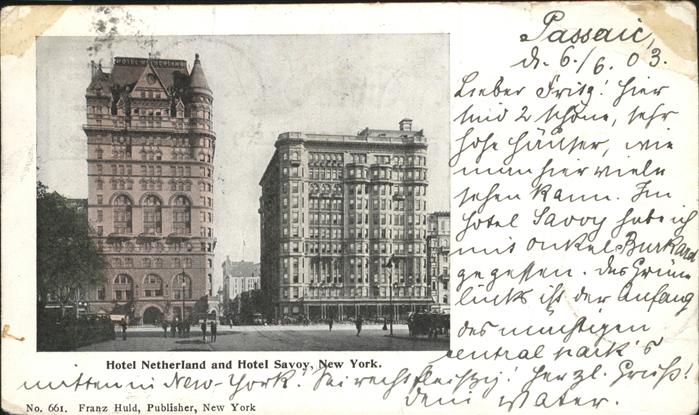 Passaic,
d. 6./6. 03.
Lieber Fritz! Hier
sind 2 schöne, sehr
hohe Häuser, wie
man hier viele
sehen kann. Im
Hotel Savoy habe ich
mit Onkel Burkard
gegessen. Das Grüne
links ist der Anfang
des mächtigen
Central Park's
mitten in New-York. Sei recht fleissig! Herzl. Gruß!
Dein Vater.
HOTEL NETHERLAND
Hotel Netherland and Hotel Savoy, New York.
No. 661. Franz Huld, Publisher, New York